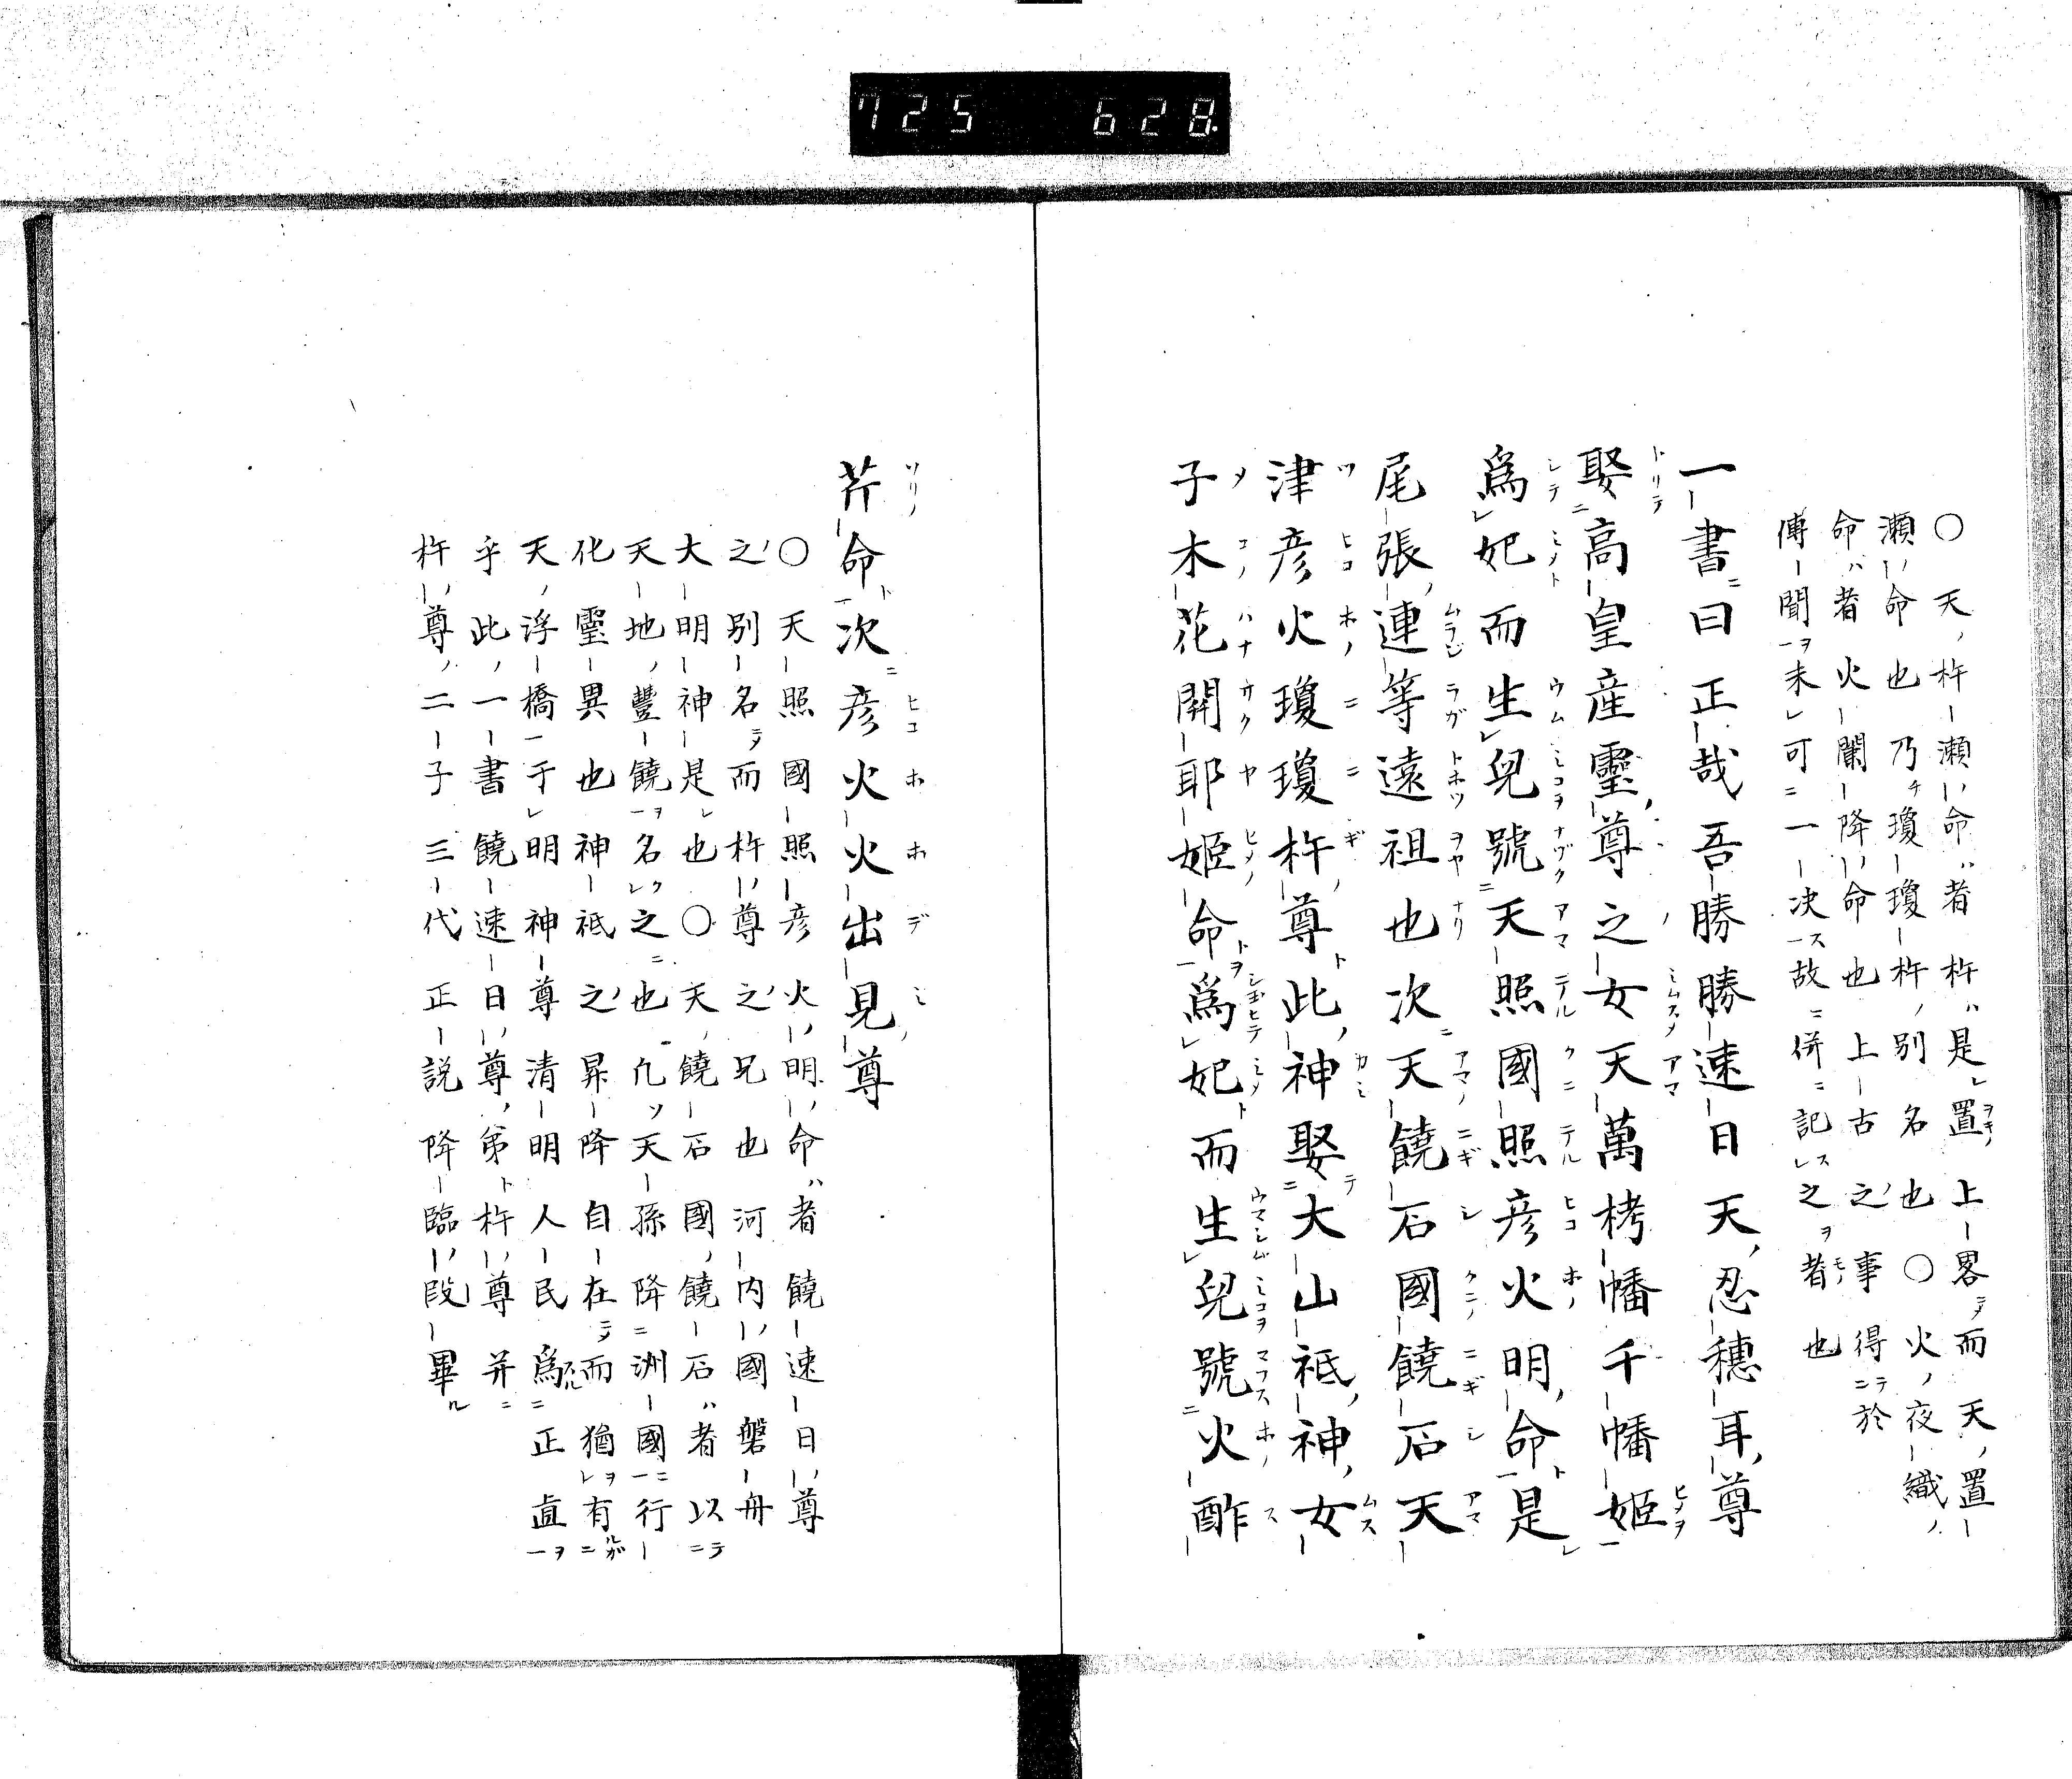 725 628.
○天ノ杵瀬命ハ者杵ハ是レ置上畧而天ノ置
瀬命也乃チ瓊瓊杵ノ別名也○火ノ夜織ノ
命ハ者火闌降命也上古之事得テ於
傳聞ヲ未可一決ス故ニ併ニ記ス之ヲ者也
一書ニ曰正哉吾勝勝速日天忍穗耳尊
娶高皇産靈尊之女天萬栲幡千幡姬
爲妃而生兒號天照國照彦火明命是
尾張連等遠祖也次天饒石國饒石天
津彦火瓊瓊杵尊此神娶大山祇神女
子木花開耶姬命爲妃而生兒號火酢
芹命次彦火火出見尊
○天照國照彦火明命ハ者饒速日尊
之別名而杵尊之兄也河内國磐舟
大明神是也○天饒石國饒石ハ者以テ
天地ノ豐饒ヲ名之也凢ソ天孫降洲國ニ行
化靈異也神祇之昇降自在而猶有
天ノ浮橋于明神尊清明人民爲正直ヲ
乎此ノ一書饒速日尊ノ弟ト杵尊并ニ
杵尊ノ二子三代正説降臨段畢ル